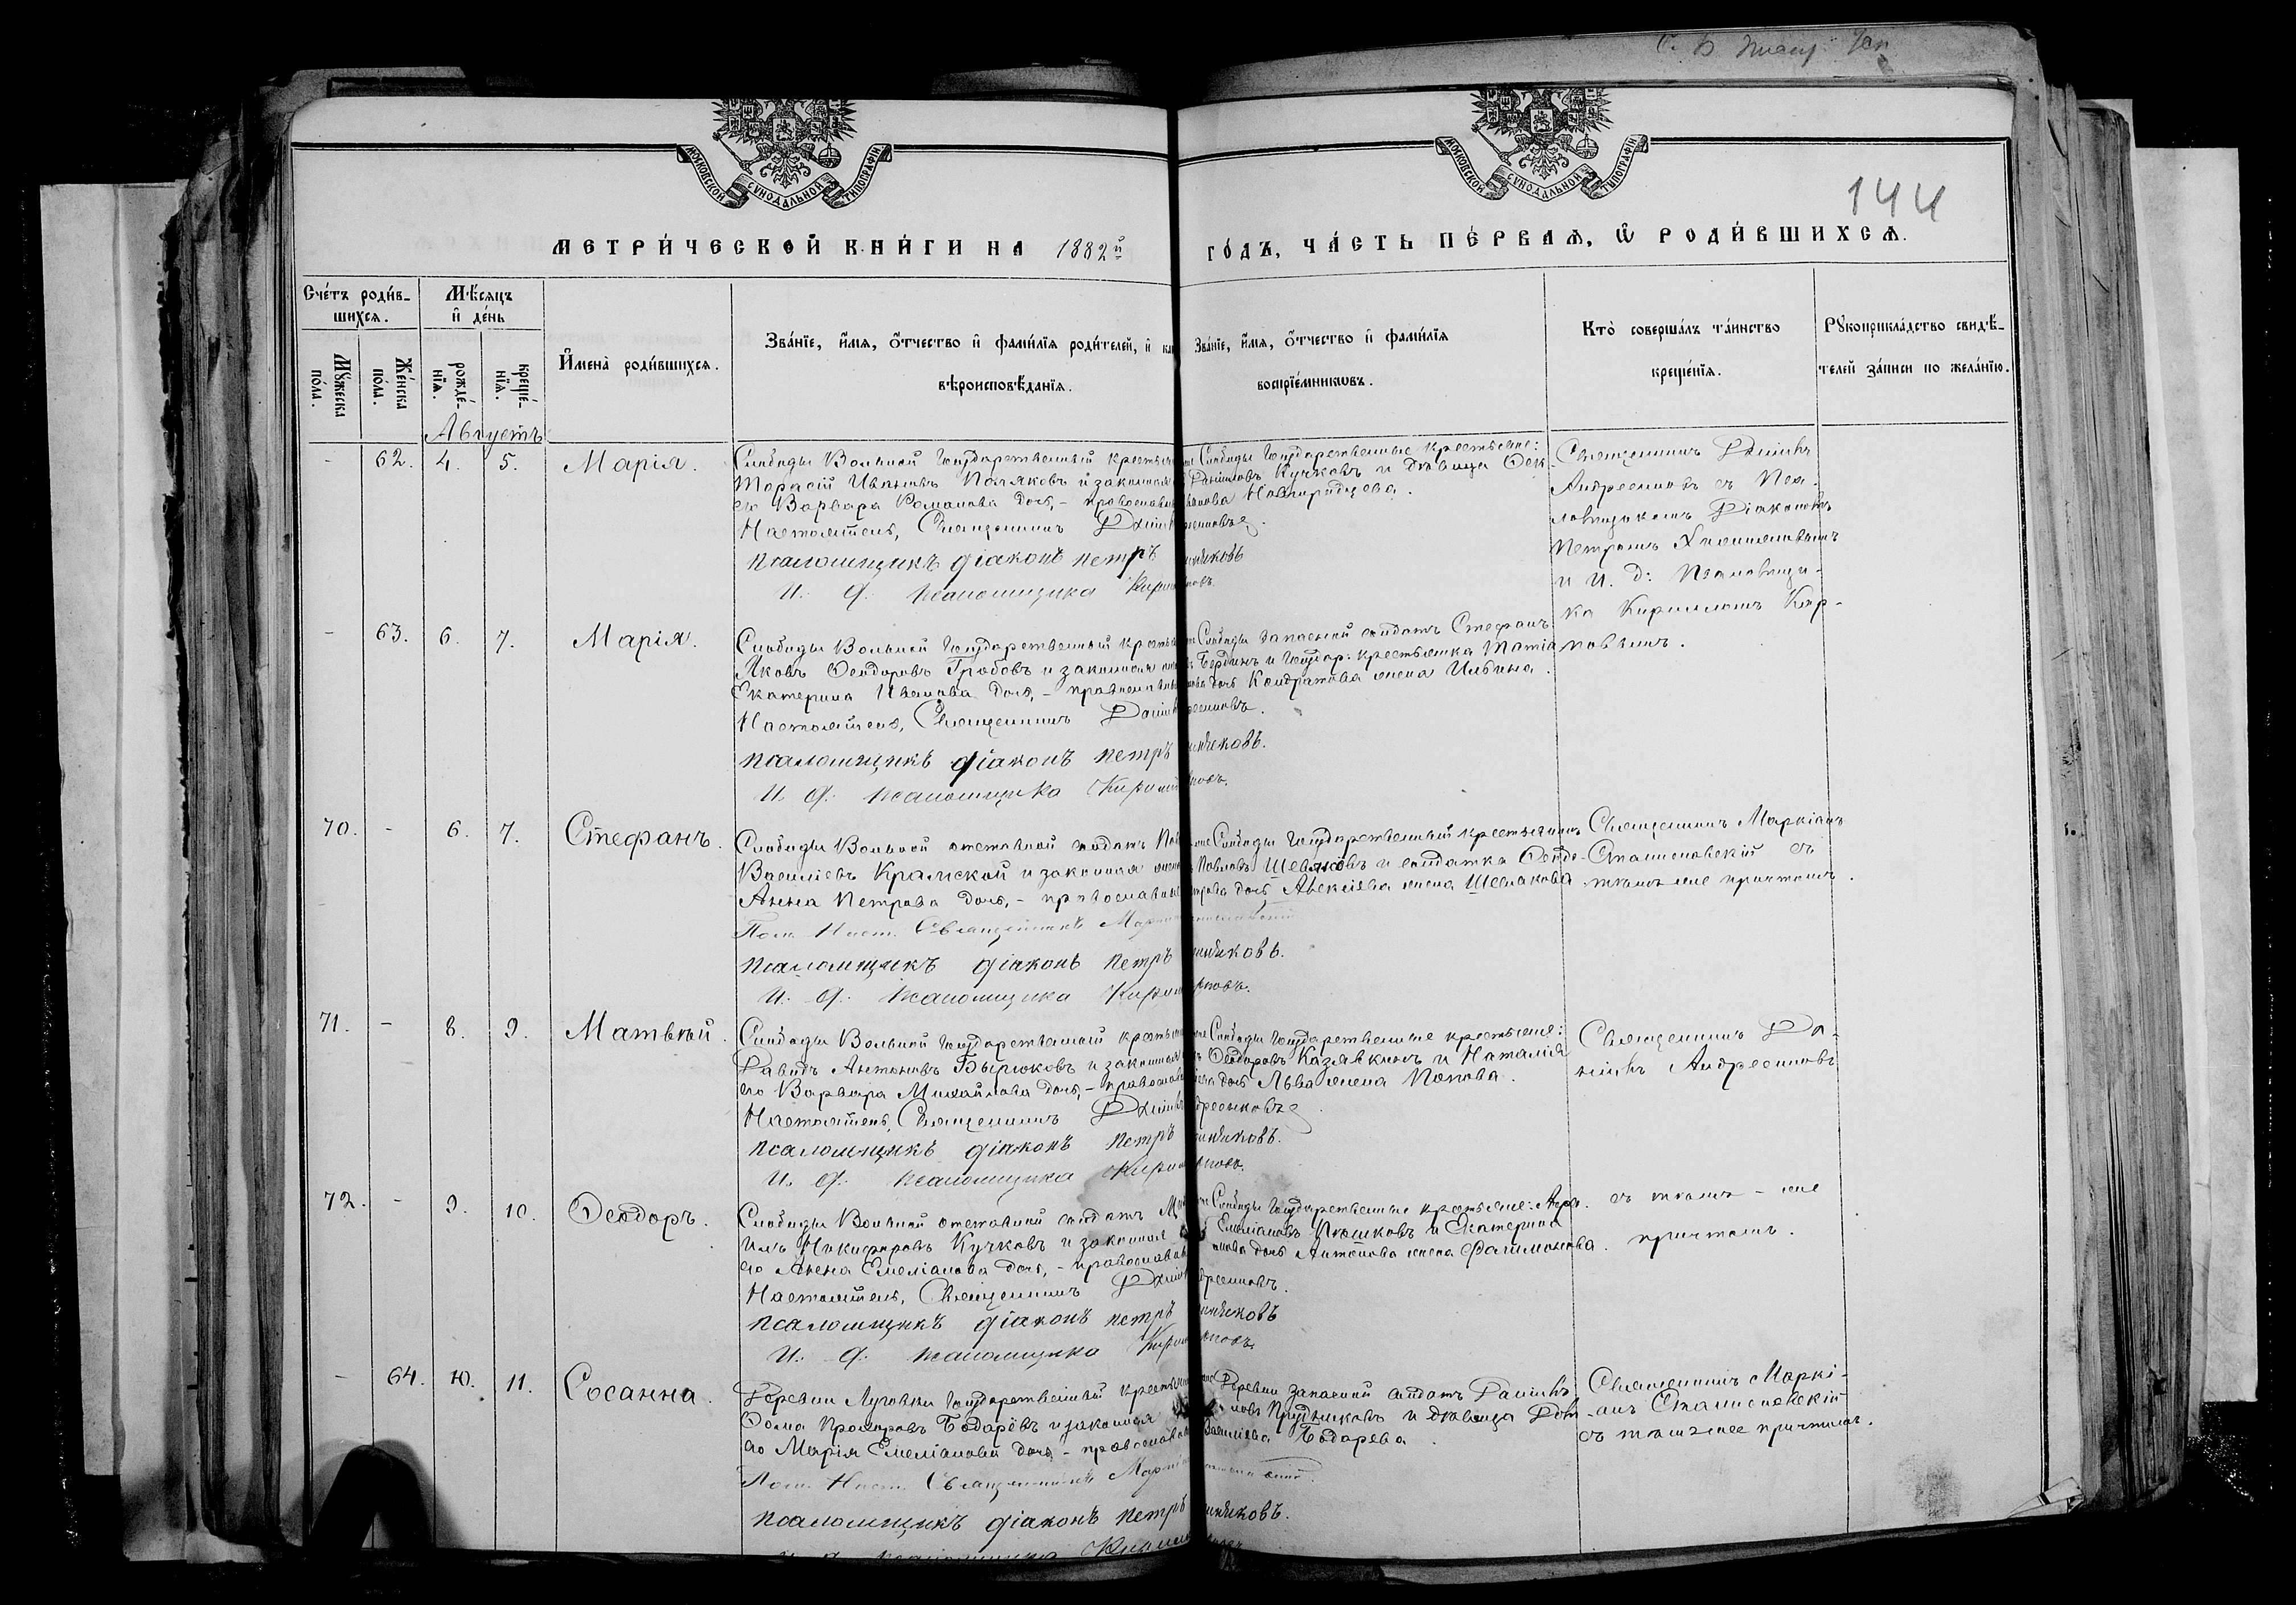 144
МЕТРИ́ЧЕСКОЙ КНИ́ГИ НА 1882й
ГО́ДЪ, ЧА́СТЬ ПЕ́РВАѦ, Ѡ РОДИ́ВШИХСѦ.
МОСКОВСКОЙ СѴНОДАЛЬНОЙ ТИПОГРАФІИ
МОСКОВСКОЙ СѴНОДАЛЬНОЙ ТИПОГРАФІИ
Сче́тъ роди́в-
шихсѧ.
Мѣ́сѧцъ
и҆ де́нь
Мꙋжеска
по́ла.
Же́нска
по́ла.
рожде́-
нїѧ.
креще́-
нїѧ.
И҆мена̀ роди́вшихсѧ.
Зва́нїе, и҆́мѧ, ѻ҆́тчество и҆ фами́лїѧ роди́телей, и҆ как
вѣроисповѣ́данїѧ.
Зва́нїе, и҆́мѧ, ѻ҆́тчество и҆ фами́лїѧ
воспрїе́мникѡвъ.
Кто̀ соверша́лъ та́инство
креще́нїѧ.
Рꙋкоприкла́дство свидѣ́-
телей за́писи по жела́нїю.
Августъ
- 62. 4. 5. Марія.
Слободы Вольной Государственный крестья
Тарасій Ивановъ Поляковъ и законная
его Варвара Романова дочь, - православн
Настоятель, Священникъ Даніи
псаломщикъ діаконъ петръ
И. д. псаломщика Кирил
Слободы Государственные крестьяне:
Даніиловъ Кучковъ и дѣвица Оек-
Священникъ Даніилъ
Андреенковъ съ Пса-
ломщикомъ Діакономъ
Петромъ
и И. д: Псаломщи-
ка Кирилломъ Кар-
повымъ.
- 63. 6. 7. Марія.
Слободы Вольной Государственный кресть
Яковъ Ѳеодоровъ Грабовъ и законная
Екатерина Иванова дочь, - православн
Настоятель, Священникъ Даніил
псаломщикъ діаконъ петръ
И. д. псаломщика Кирил
Слободы запасной солдатъ Стефанъ
Бердинъ и Госдар: крестьянка
дочь Кондратова жена Ильина.
70. - 6. 7. Стефанъ.
Слободы Вольной отставной солдатъ
Василіевъ Крамской и законная жен
Анна Петрова дочь, - православн
Пом. Наст. Священникъ Марк
псаломщикъ діаконъ петръ
И. д. псаломщика Кирил
Слободы Государственный крестьянинъ
Павловъ Шевяковъ и солдатка
дочь Алексіева жена Шевякова
Священникъ Маркіанъ
Станиславскій съ
тѣмъ же причтомъ.
71. - 8. 9. Матвѣй.
Слободы Вольной Государственный крестья
Давидъ Антоновъ Бырюковъ и законная
его Варвара Михайлова дочь, - православн
Настоятель, Священникъ Даніил
псаломщикъ діаконъ петръ
И. д. псаломщика Кирил
Слободы Государственные крестьяне:
Ѳеодоровъ Казявкинъ и Наталія
дочь Льва жена Попова.
Священникъ Да-
ніилъ Андреенковъ
72. - 9. 10. Ѳеодоръ.
Слободы Вольной отставной солдатъ Ми
илъ Никифоровъ Кучковъ и законная
его Анна Емеліанова дочь, - православн
Настоятель, Священникъ Даніил
псаломщикъ діаконъ петръ
И. д. псаломщика Кирил
Слободы Государственные крестьяне:
Емеліановъ Пюшковъ и Екатерина
дочь Антонова жена Филимонова.
съ тѣмъ - же
причтомъ.
- 64. 10. 11. Сосанна.
Деревни Луговки Государственный крестья
Ѳома Прохоровъ Бодарёвъ и законная
его Марія Емеліанова дочь - православн
Пом. Наст. Священникъ Маркі
псаломщикъ діаконъ петръ
И. д. псаломщика Кирил
Деревни запасной солдатъ Даніилъ
Прудниковъ и дѣвица
Василіева Бодарева.
Священникъ Маркі-
анъ Станиславскій
съ тѣмъ же причтомъ.